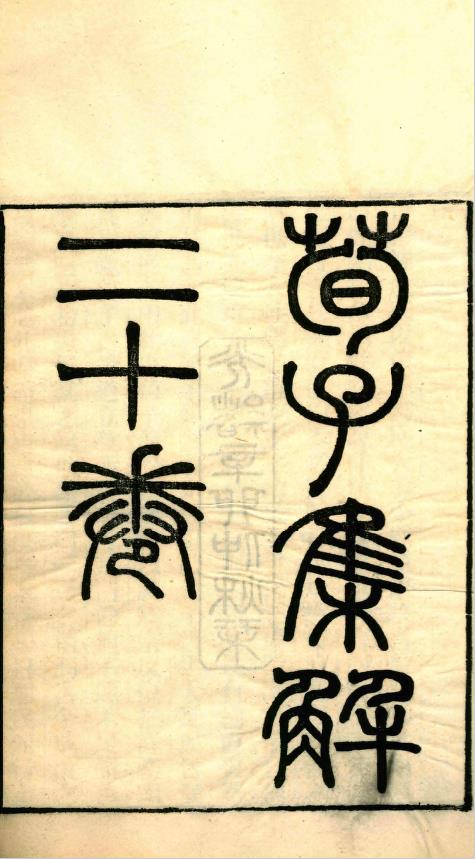 荀子集解
二十卷